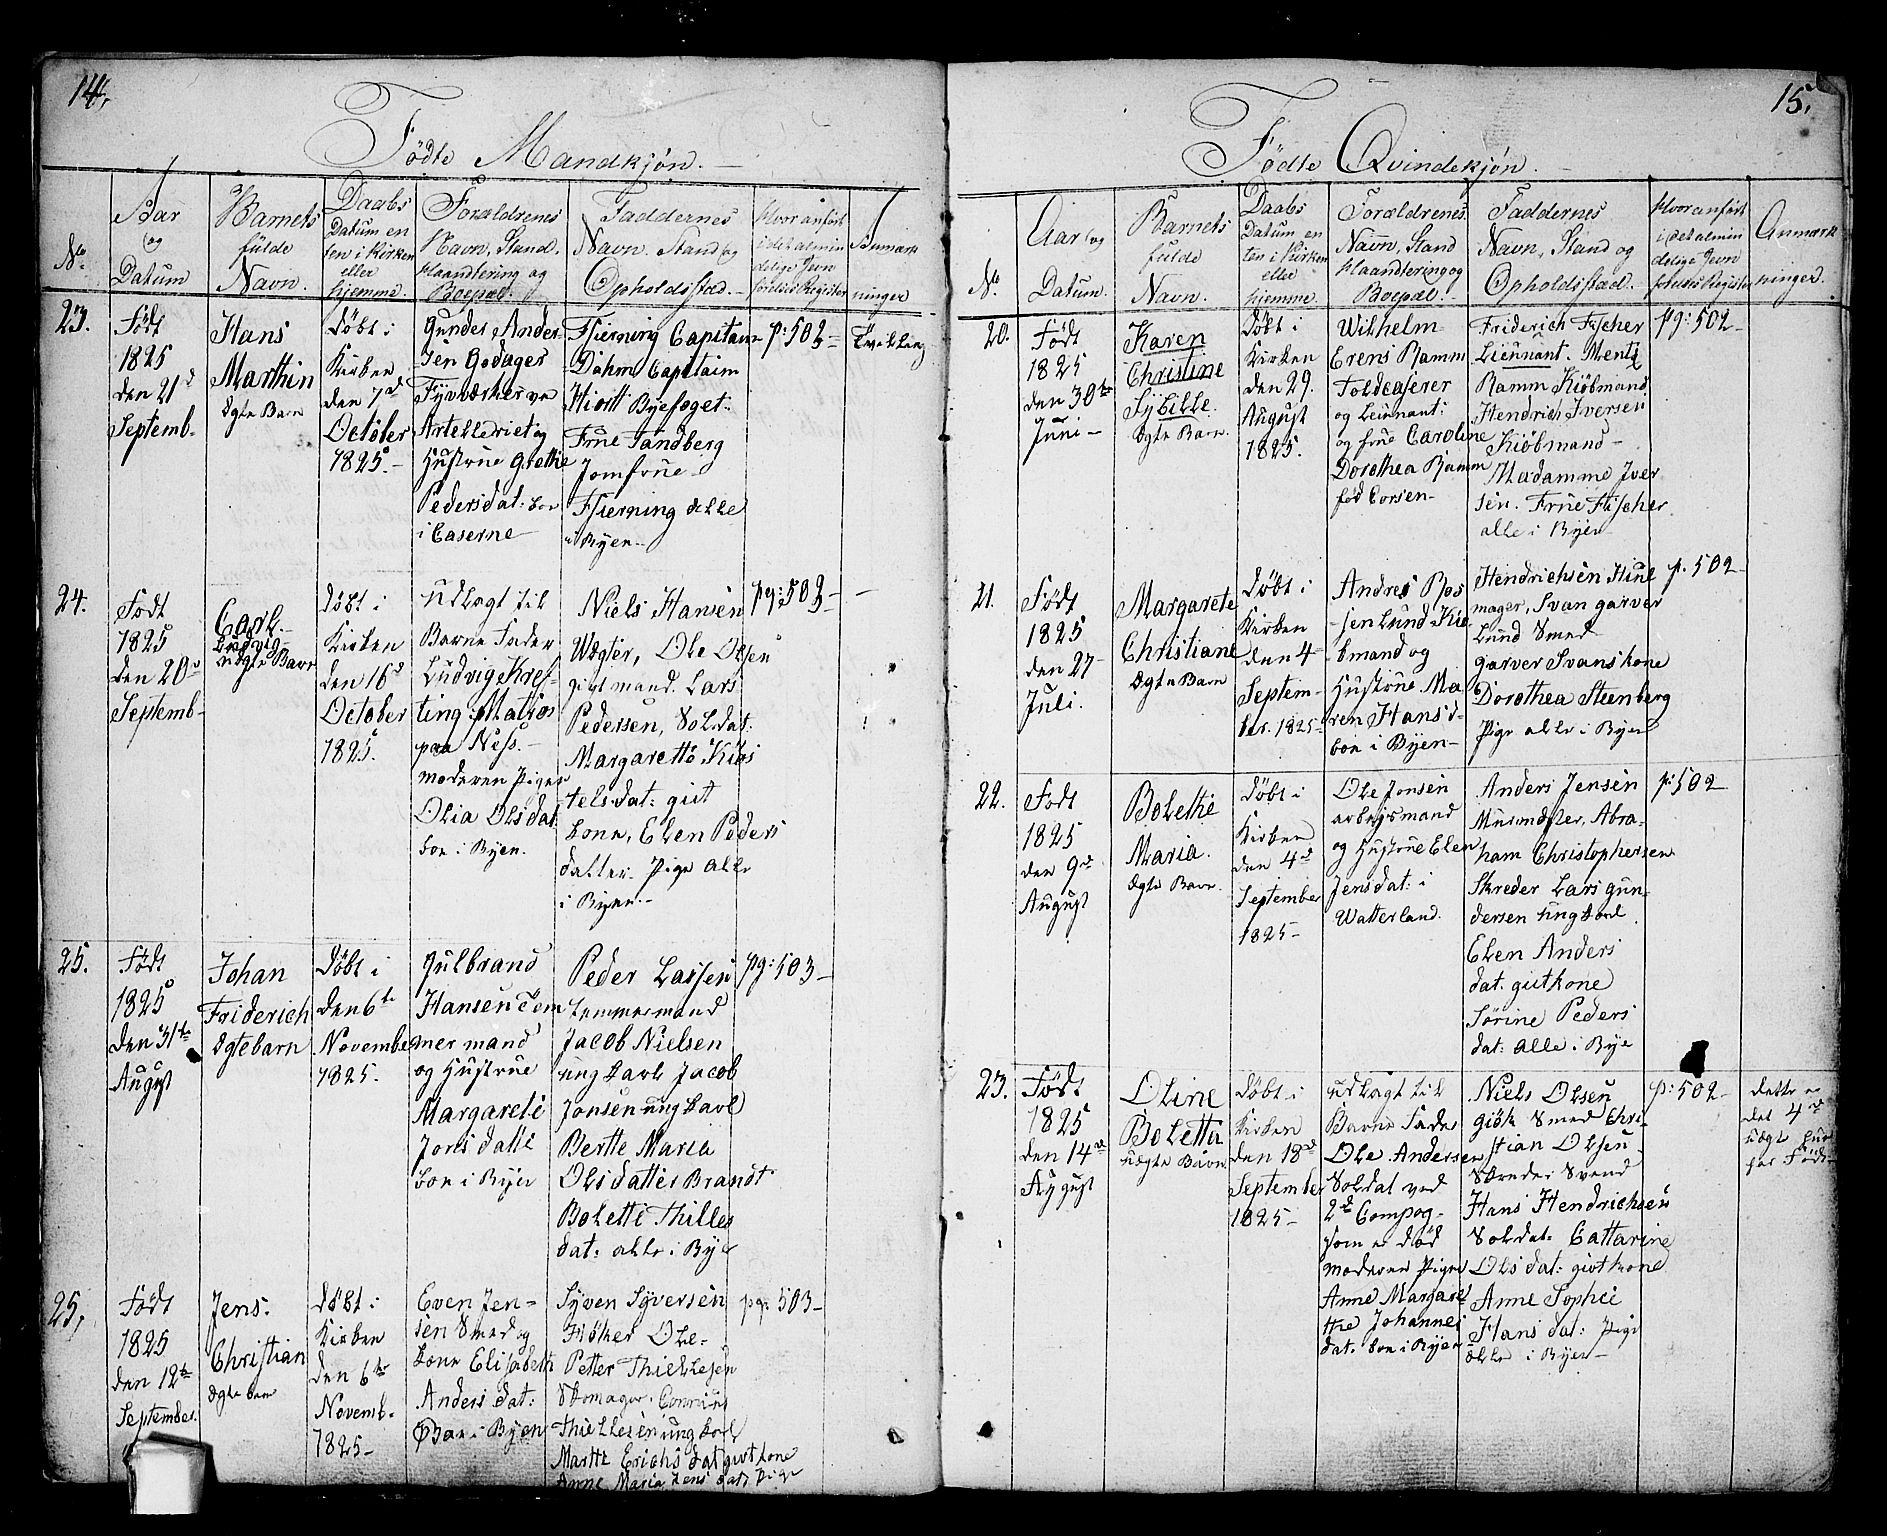 14,
Födte Mandkjón.
No.
Aar og Datum
Barnets fulde Navn.
Daabs Datum enten i Kirken eller hjemme.
Forældrenes Navn, Stand, Haandtering og Boepæl.
Faddernes Navn, Stand og Opholdsstæd.
Hvor anført i det almindelige Jevnførelses Register
Anmærkninger
23.
Født
1825
den 21d
Septemb.
Hans
Marthin
Ægte Barn
Døbt i
Kirken
den 7d
October
1825.
Gunder Ander-
sen Godager
Fyrværker ve
Artelleriet og
Hustrue Grethe
Pedersdat: boe
i Caserne
Fierning Capitain
Dahm Capitaim
Hiort Byefoget.
Frue Tandberg
Jomfrue
Fierning alle
i Byen
p: 503
Tvilling
24.
Født
1825
den 20d
Septemb-
Carl
Ludvig
uægte Barn
Døbt i
Kirken
den 16d
October
1825.
Udlagt til
Barne Fader
Ludvig Kres-
ting Matros
paa Ness.
moderen Pigen
Olia Olsdat
boe i Byen.
Niels Hansen
Wægter, Ole Olsen
givt mand. Lars
Pedersen, Soldat.
Margarette Kiøs
telsdat: givt
kone, Elen Peders
datter. Pige alle
i Byen.
pg: 503
25.
Født
1825
den 31te
August
Johan
Friderich
Ægtebarn
Døbt i
den 6te
November
1825.
Gulbrand
Hansen Tøm
mer mand
og Hustrue
Margarete
Jons datte
boe i Byen
Peder Lassen
temmermand
Jacob Nielsen
ung karl Jacob
Jonsen ung karl
Berthe Maria
Olsdatter Brandt
Boletti Thilles
dat: alle i Byen
pg: 503
25,
Født
1825
den 12te
September.
Jens.
Christian
Ægte barn
Døbt i
Kirken
den 6te
Novemb.
1825
Even Jen-
sen Smed og
kone Elisabeth
Anders dat:
Boe i Byen
Syven Syversen
Høker Ole.
Petter Thiellesen
Skomager.
Thiellesen ung karl
Marthe Erichsdat givt kone
Anne Maria Jens dat: Pige
pg: 503
15,
Födte Qvindekjón.
No
Aar og Datum.
Barnets fulde Navn.
Daabs Datum enten i Kirken eller hjemme.
Forældrenes Navn, Stand Haandtering og Boepæl.
Faddernes Navn, Stand og Opholdsstæd.
Hvor anført i det almindelige Jevnførelses Register
Anmærkninger.
20.
Født
1825
den 30te
Juni
Karen
Christine
Sybille.
Ægte Barn.
Døbt i
Kirken
den 29.
August
1825.
Wilhelm
Erens Ramm
Toldcaserer
og Leiunant:
og frue Caroline
Dorothea Ramm
fød Corsen
Friderich Fischer
Leiunnant. Mentz
Ramm Kiøbmand
Hendrich Iversen
Kiøbmand
Madamme Iver
sen. Frue Fischer
alle i Byen
pg: 502
21.
Født
1825
den 27
Juli.
Margarete
Christiane
Ægte Barn
Døbt i
Kirken
den 4
Septem-
ber. 1825
Andres Bos
sen Lund Kiø
bmand og
Hustrue Ma
ren Hansd-
boe i Byen
Hendrichsen Hiul
mager, Svan garver
Lund Smed
garver Svans kone
Dorothea Steenberg
Pige alle i Byen
p. 502
22.
Født
1825
den 9d
August
Bolethe
Maria.
Ægte Barn.
Døbt i
Kirken
den 4d
September
1825
Ole Jonsen
arbejsmand
og Hustrue Elen
Jensdat: i
Watterland.
Anders Jensen
Murmester, Abra-
ham Christophersen
Skreder Lars Gun-
dersen ung karl
Elen Anders
dat. givt kone
Sørine Peders
dat: alle i Bye
p: 502
23.
Født
1825
den 14de
August
Oline
Boletta
uægte Barn.
Døbt i
Kirken
den 18de
September
1825
udlagt til
Barne Fader
Ole Andersen
Soldat ved
2d Compag-
som er død
moderen Pigen
Anne Margare
the Johannes
dat. boe i Byen
Niels Olsen
giøk Smed Chri-
stian Olsen
Svend
Hans Hendrichsen
Soldat Cattarine
Olsdat: givt kone
Anne Sophei
Hans dat: Pige
alle i Byen
p: 502
dette er
det 4de
uægte hun
har Født